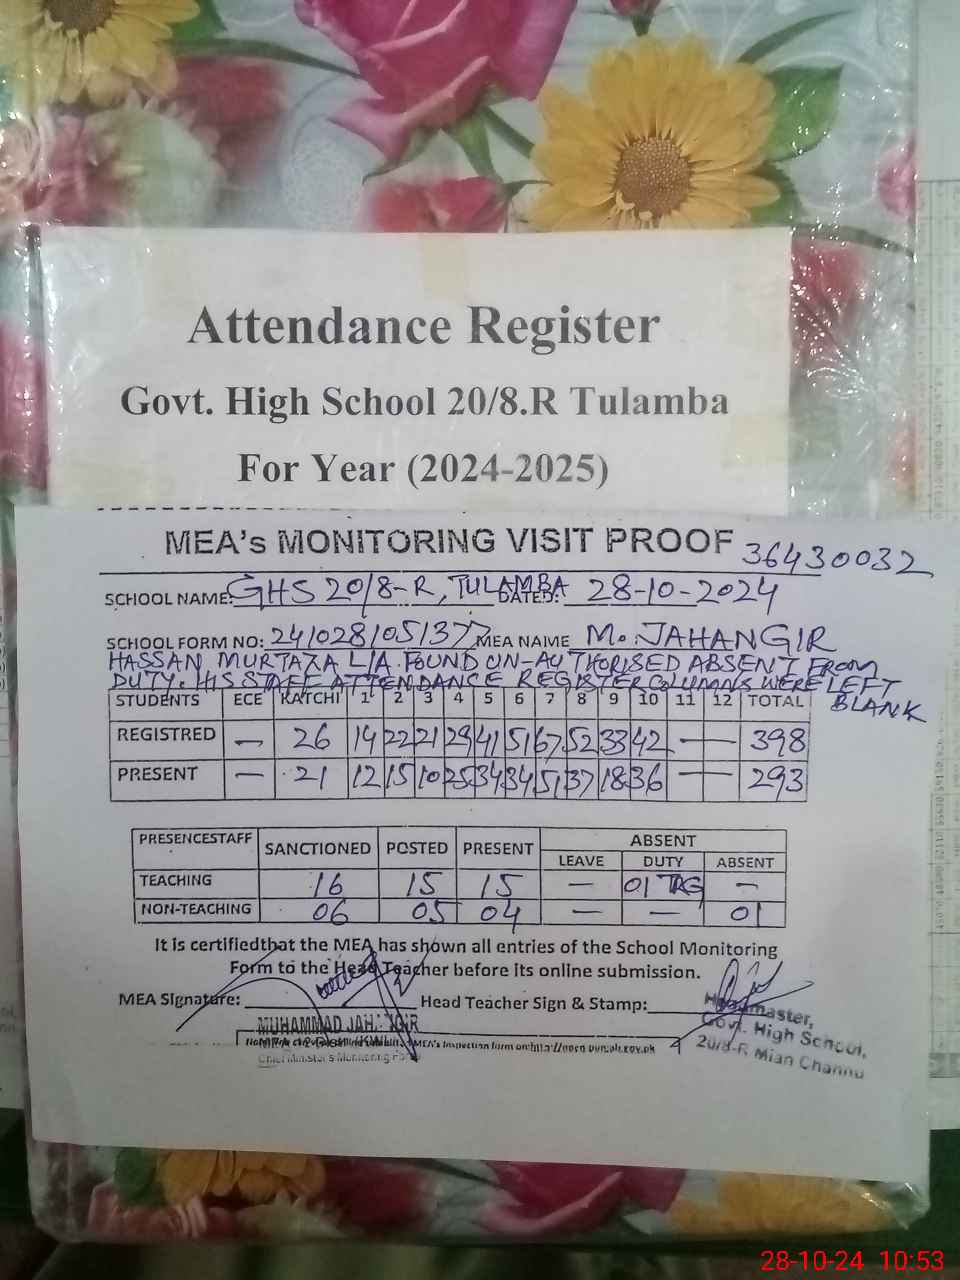 Attendance Register
Govt. High School 20/8.R Tulamba
For Year (2024-2025)
MEA's MONITORING VISIT PROOF 36430032
SCHOOL NAME: GHS 20/8-R, TULAMBA DATED: 28-10-2024
SCHOOL FORM NO: 241028105137 MEA NAME M. JAHANGIR
HASSAN MURTAZA L/A FOUND UN-AUTHORISED ABSENT FROM
DUTY. HIS STAFF ATTENDANCE REGISTER COLUMNS WERE LEFT
BLANK
STUDENTS ECE KATCHI 1 2 3 4 5 6 7 8 9 10 11 12 TOTAL
REGISTRED — 26 14 22 21 29 41 51 67 52 33 42 — — 398
PRESENT — 21 12 15 10 25 34 34 51 37 18 36 — — 293
PRESENCESTAFF SANCTIONED POSTED PRESENT ABSENT
LEAVE DUTY ABSENT
TEACHING 16 15 15 — 01 TAG —
NON-TEACHING 06 05 04 — — 01
It is certifiedthat the MEA has shown all entries of the School Monitoring
Form to the Head Teacher before its online submission.
MEA Signature: Head Teacher Sign & Stamp:
MUHAMMAD JAHANGIR
Chief Minister's Monitoring Force
Headmaster,
Govt. High School,
20/8-R Mian Channu
28-10-24 10:53